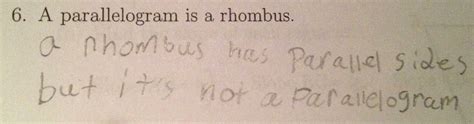 6. A parallelogram is a rhombus.
a rhombus has Parallel sides
but it's not a Parallelogram